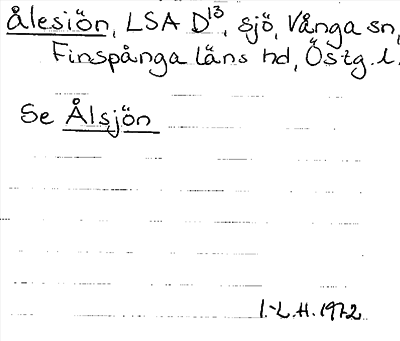 Ålesiön, LSA D¹³, sjö, Vånga sn,
Finspånga läns hd, Östg. l.
Se Ålsjön
I.-L. H. 1972